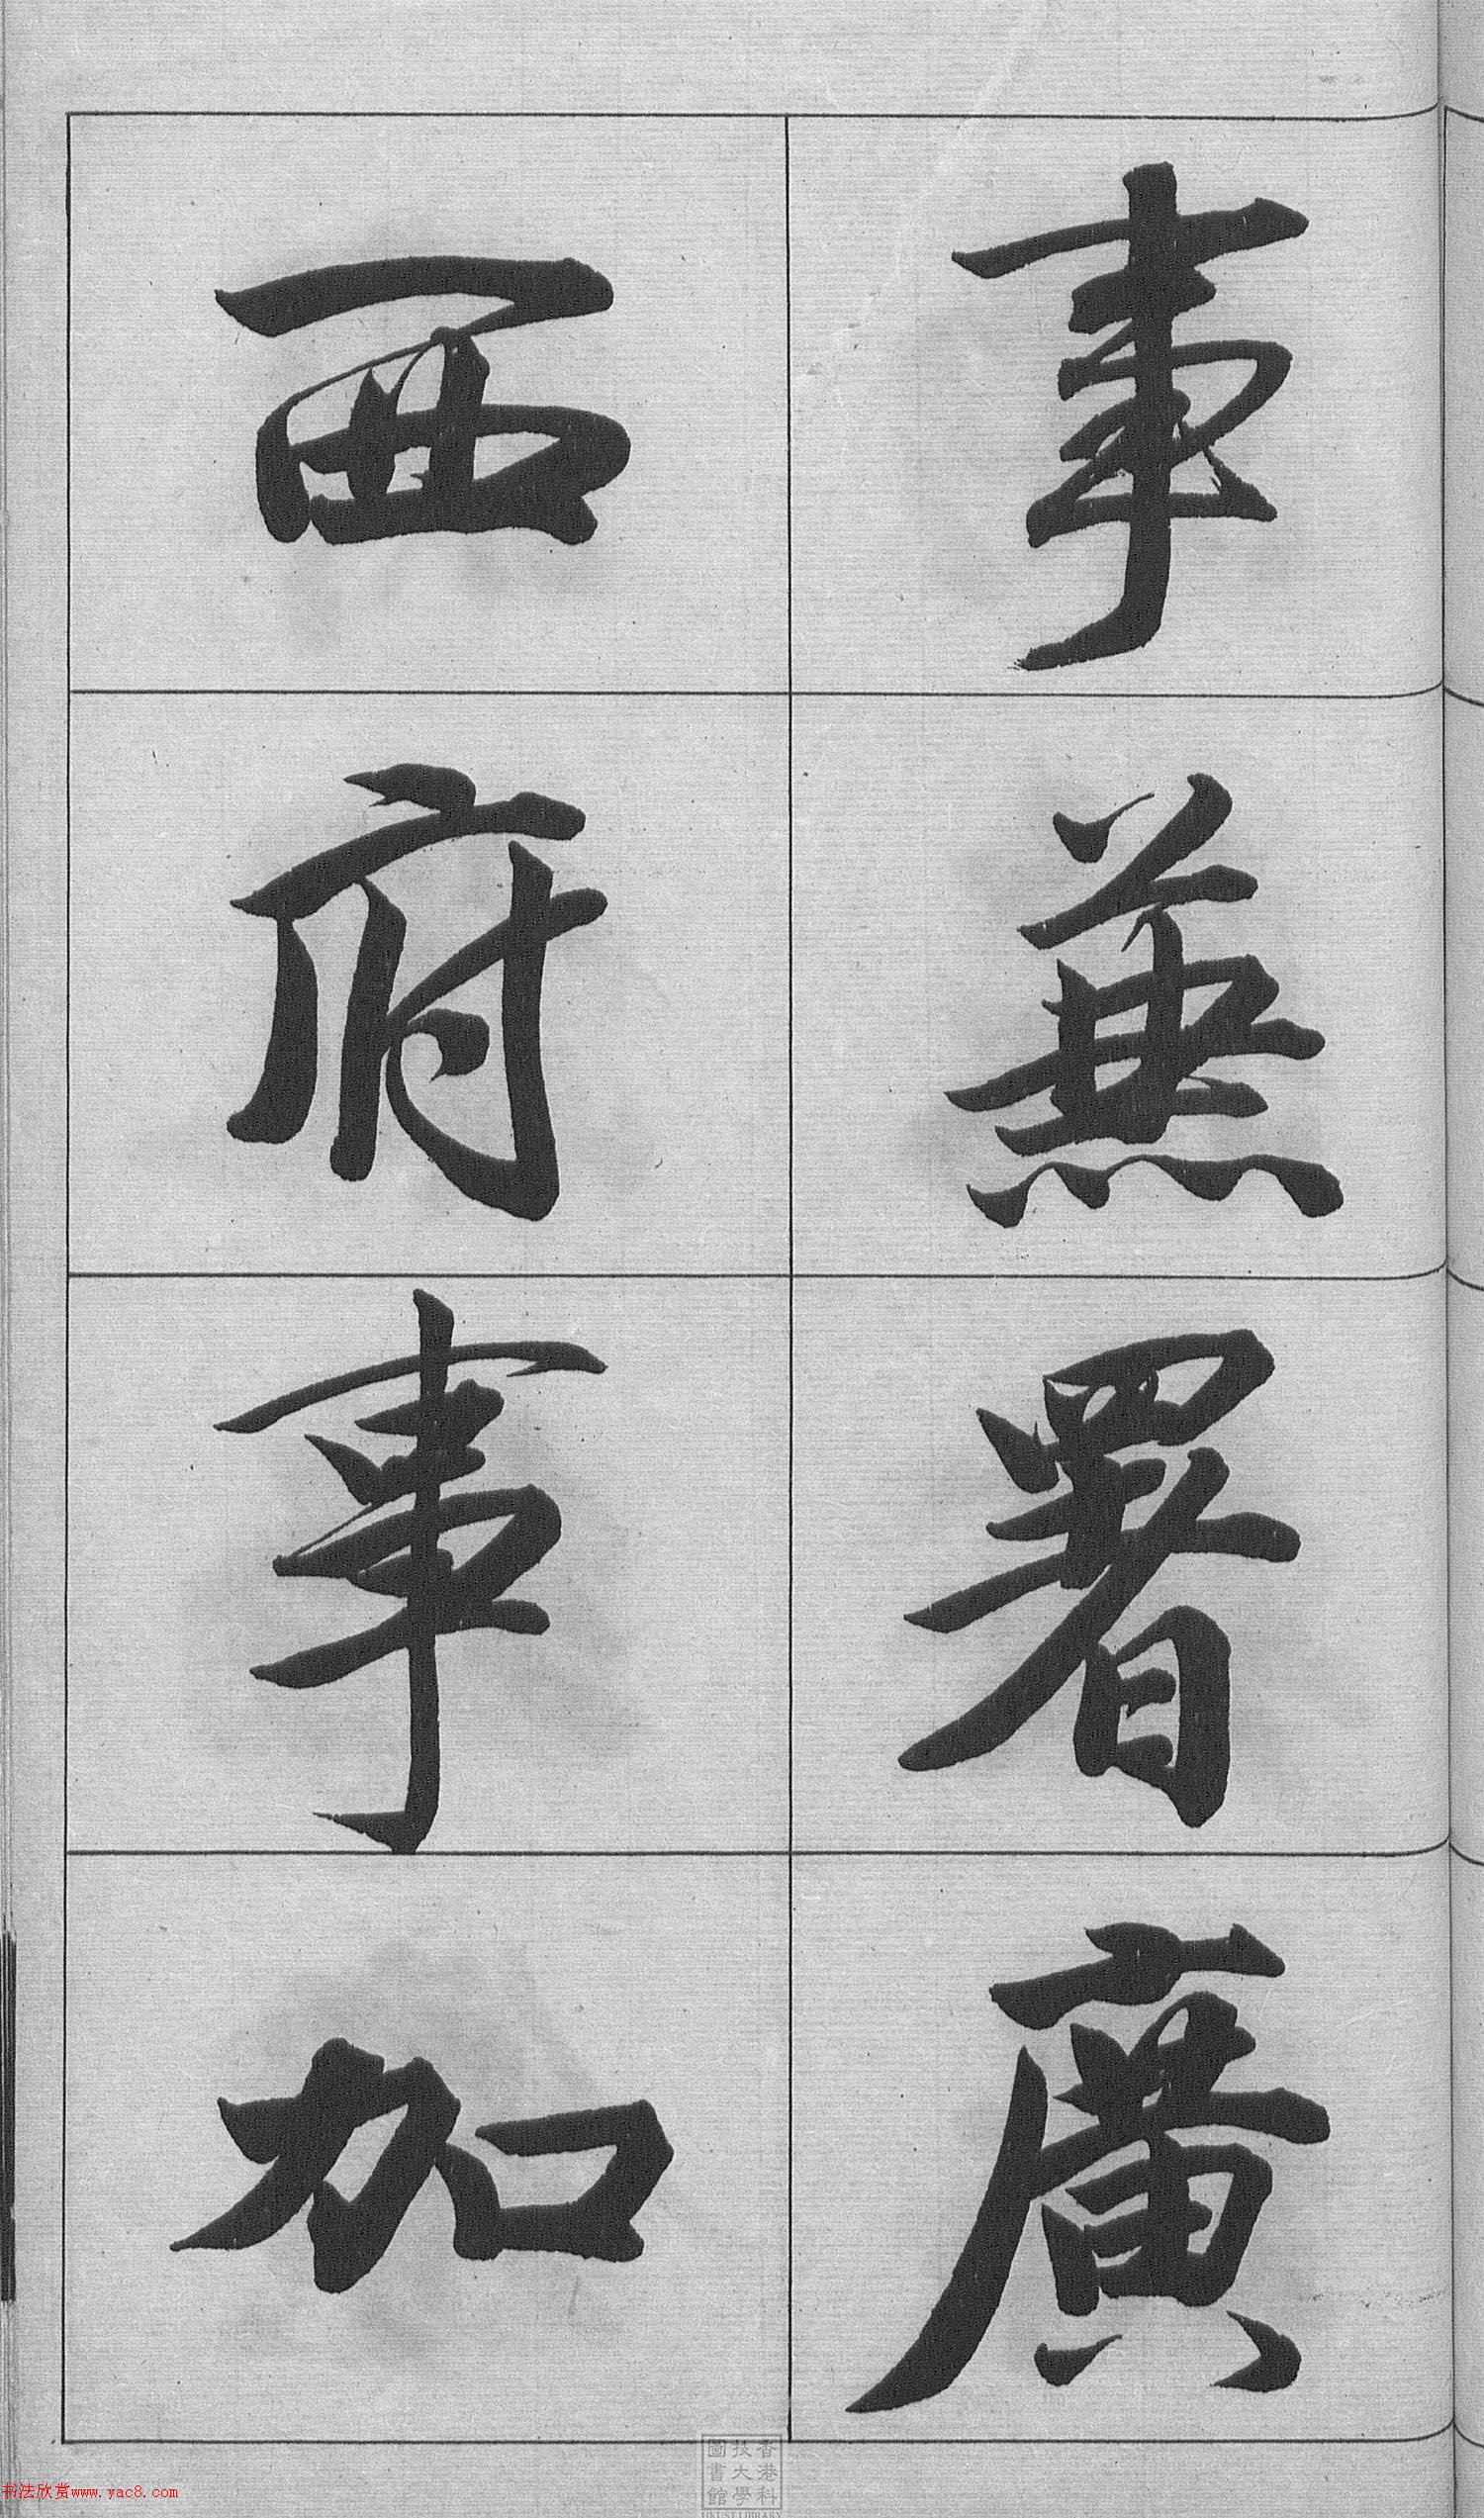 事兼署廣
西府事加
香港科
技大學
圖書館
HKUST LIBRARY
书法欣赏www.yac8.com